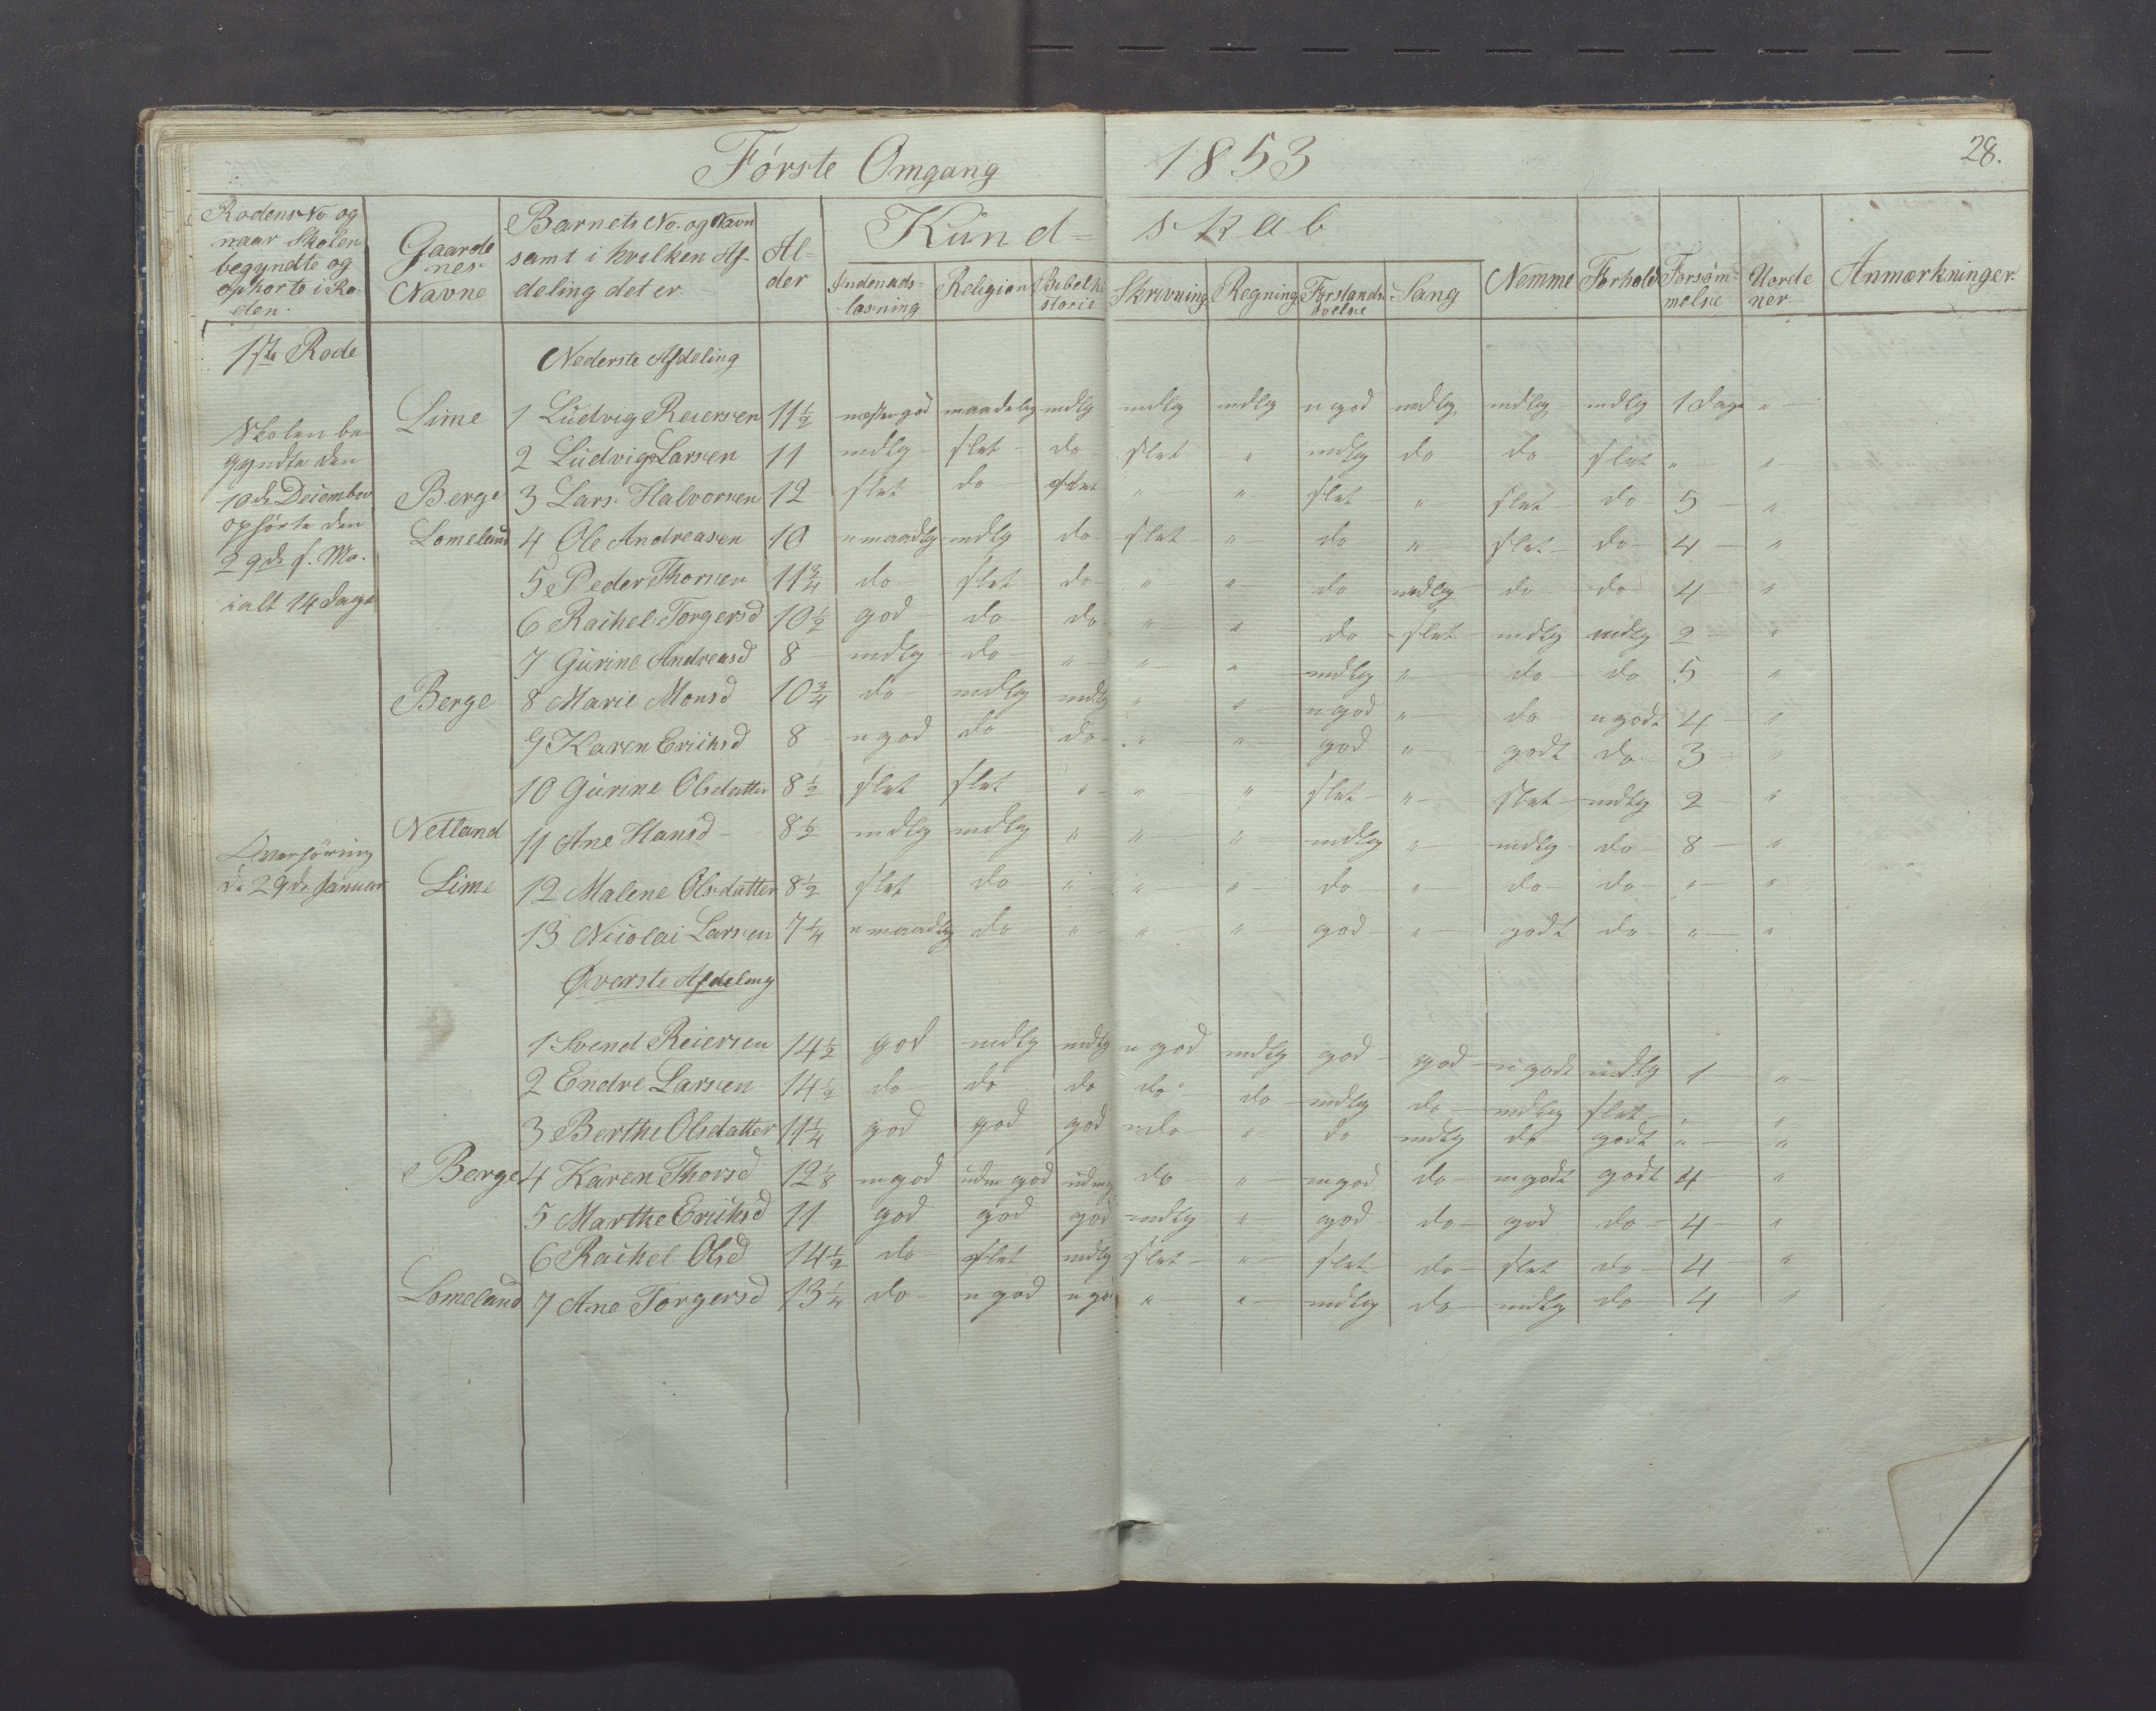 Første Omgang 1853
28.
Rodens No og
naar Skolen
begyndte og
ophørte i Ro-
den.
Gaarde
nes
Navne
Barnets No. og Navn
samt i hvilken Af-
deling det er.
Al-
der
Kund- skab
Indenads-
læsning
Religion
Bibelhi
storie
Skrivning
Regning
Forstands
øvelse
Sang
Nemme
Forhold
Forsøm-
melse
Uorde
ner
Anmærkninger.
1ste Rode
Nederste Afdeling
Skolen be
gyndte den
10de December
ophørte den
29de f. Md.
ialt 14 dage
Lime 1 Ludvig Reiersen 11½ næstengod maadelig mdlg mdlg mdlg n god mdlg mdlg mdlg 1 Dage "
2 Ludvig Larsen 11 mdlg slet do slet " mdlg do do slet " "
Berge 3 Lars Halvorsen 12 slet do slet " " slet " slet do 5 "
Lomeland 4 Ole Andreasen 10 n maadlg mdlg do slet " do " slet do 4 "
5 Peder Thorsen 11¾ do slet do " " do mdlg do do 4 "
6 Rachel Torgersd 10½ god do do " " do slet mdlg mdlg 2 "
7 Gurine Andreasd 8 mdlg do " " " mdlg " do do 5 "
Berge 8 Marie Monsd 10¾ do mdlg mdlg " " n god " do n godt 4 "
9 Karen Erichsd 8 n god do do " " god " godt do 3 "
10 Gurine Olsdatter 8½ slet slet " " " slet " slet mdlg 2 "
Netland 11 Ane Hansd 8½ mdlg mdlg " " " mdlg " mdlg do 8 "
Overhøring
d. 29de Januar
Lime 12 Malene Olsdatter 8½ slet do " " " do " do do " "
13 Nicolai Larsen 7¼ n maadlg do " " " god " godt do " "
Øverste Afdeling
1 Svend Reiersen 14½ god mdlg mdlg n god mdlg god god n godt mdlg 1 "
2 Endre Larsen 14½ do do do do do mdlg do mdlg slet " "
3 Berthe Olsdatter 11¼ god god god do " do mdlg do godt " "
Berge 4 Karen Thorsd 12⅛ m god udm god udmg do " m god do m godt godt 4 "
5 Marthe Erichsd 11 god god god mdlg " god do god do 4 "
6 Rachel Olsd 14½ do slet mdlg slet " slet do slet do 4 "
Lomeland 7 Ane Torgersd 13¼ do n god n go " " mdlg do mdlg do 4 "